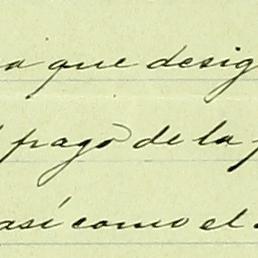 a que desig
pago de la
así como el